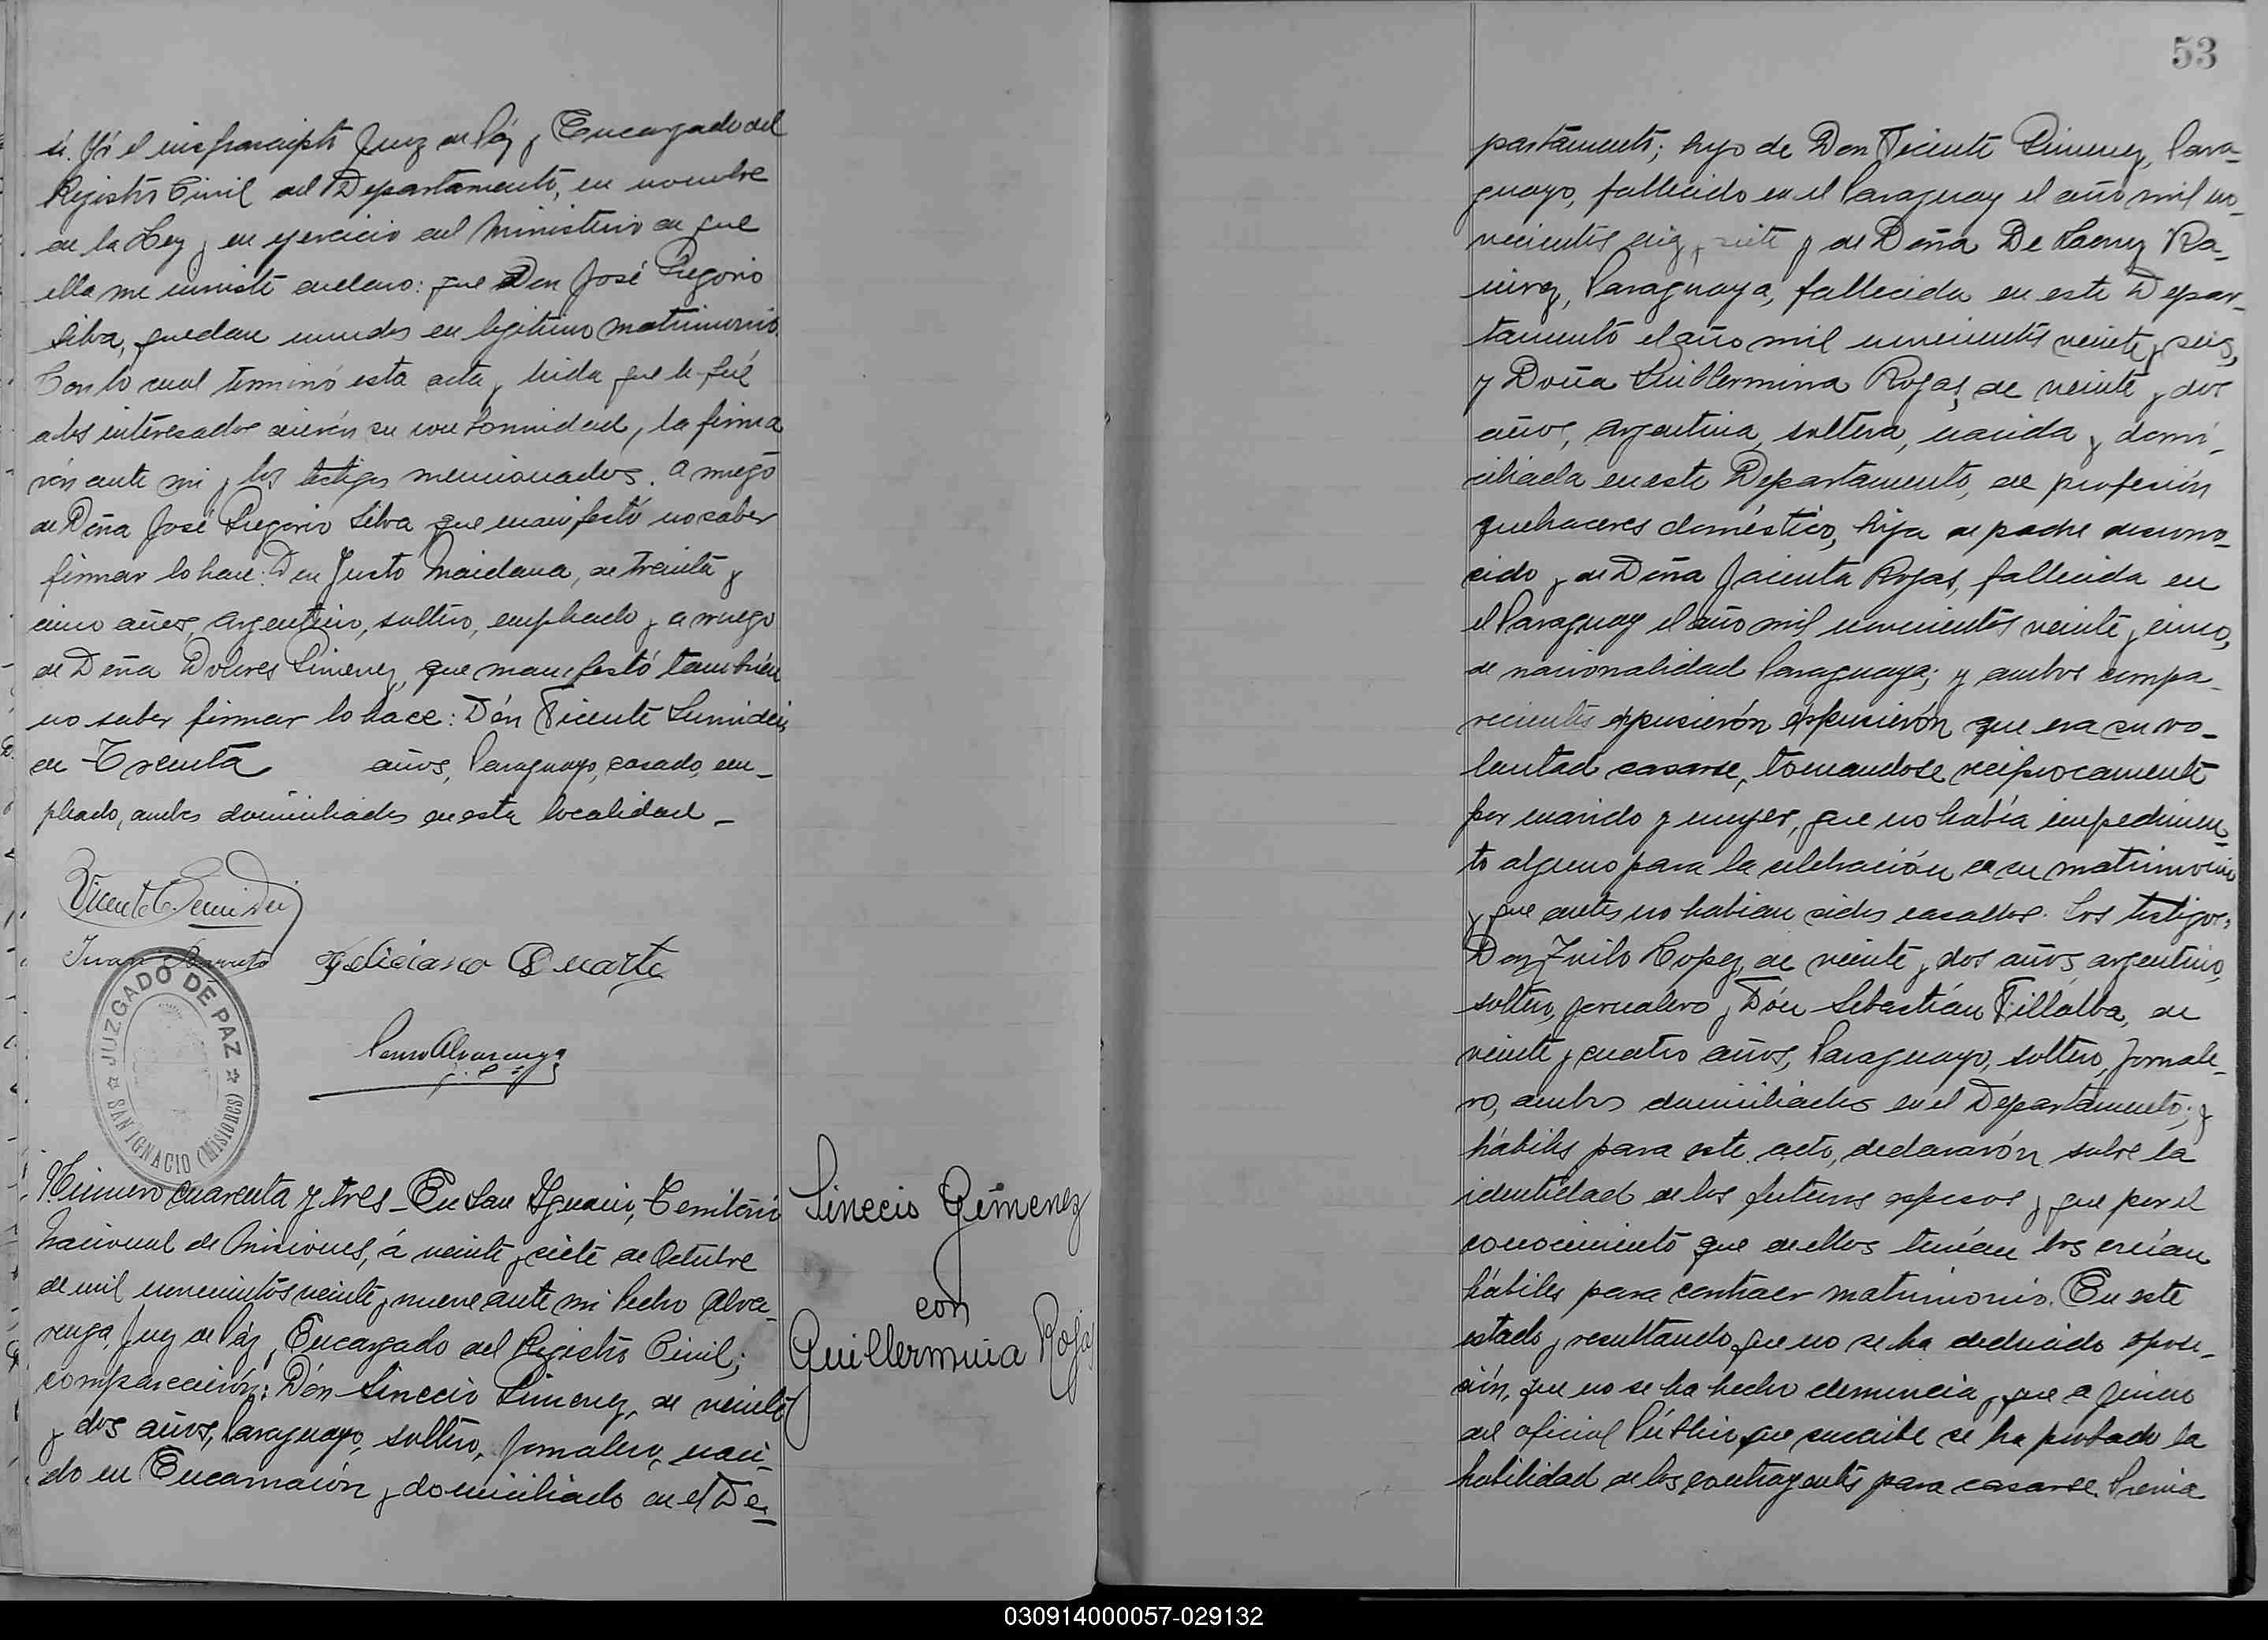 sí. Yó el infrascripto Juez de Páz y Encargado del
Registro Civil del Departamento, en nombre
de la Ley y en ejercicio del Ministerio de que
ella me inviste declaro: que Don José Gregorio
Silva, quedan unidos en legitimo matrimonio.
Con lo cual terminó esta acta y leida que le fué
a los interesados dierón su conformidad, la firma
rón ante mi y los testigos mencionados. a ruego
de Doña José Gregorio Silva que manifestó no saber
firmar lo hace: Don Justo Maidana, de treinta y
cinco años, argentino, soltero, empleado y a ruego
de Doña Dolores Gimenez, que manifestó tambien
no saber firmar lo hace: Dón Vicente
de Treinta años, Paraguayo, casado, em_
pleado, ambos domiciliados en esta localidad_
Vicente
Juan Barreto Feliciano Duarte
Pedro Alvarenga
JUZGADO DE PAZ
SAN IGNACIO (Misiones)
Número cuarenta y tres_En San Ygnacio, Territorio
Nacional de Misiones, á veinte y siete de Octubre
de mil novecientos veinte y nueve ante mi Pedro Alva_
renga, Juez de Páz y Encargado del Registro Civil;
comparecierón: Dón Sinecio Gimenez, de veinte
y dos años, Paraguayo, soltero, jornalero, naci_
do en Encarnación y domiciliado en el De_
Sinecio Gimenez
con
Guillermina Rojas
53
partamento; hijo de Don Vicente Gimenez, Para_
guayo, fallecido en el Paraguay el año mil no_
vecientos diez y siete y de Doña De Lacruz Ra_
mirez, Paraguaya, fallecida en este Depar_
tamento el año mil novecientos veinte y seis,
y Doña Guillermina Rojas, de veinte y dos
años, argentina, soltera, nacida y domi_
ciliada en este Departamento, de profesión
quehaceres doméstico, hija de padre descono_
cido y de Doña Jacinta Rojas, fallecida en
el Paraguay el año mil novecientos veinte y cinco,
de nacionalidad Paraguaya; y ambos compa_
recientes expusierón expusierón que era su vo_
luntad casarse, tomandose reciprocamente
por marido y mujer, que no había impedimen_
to alguno para la celebración de su matrimonio
y que antes no habian sidos casados. Los testigos:
Don Julio Lopez, de veinte y dos años argentino,
soltero, jornalero y Dón Sebastián Villalba, de
veinte y cuatro años, Paraguayo, soltero, jornale_
ro, ambos domiciliados en el Departamento; y
hábiles para este acto, declararón sobre la
identidad de los futuros esposos y que por el
conocimiento que de ellos tenían los creían
hábiles para contraer matrimonio. En este
estado y resultando que no se ha deducido oposi_
ción, que no se ha hecho denuncia y que a juicio
del oficial Público que suscribe se ha probado la
habilidad de los contrayentes para casarse. Previa
030914000057-029132